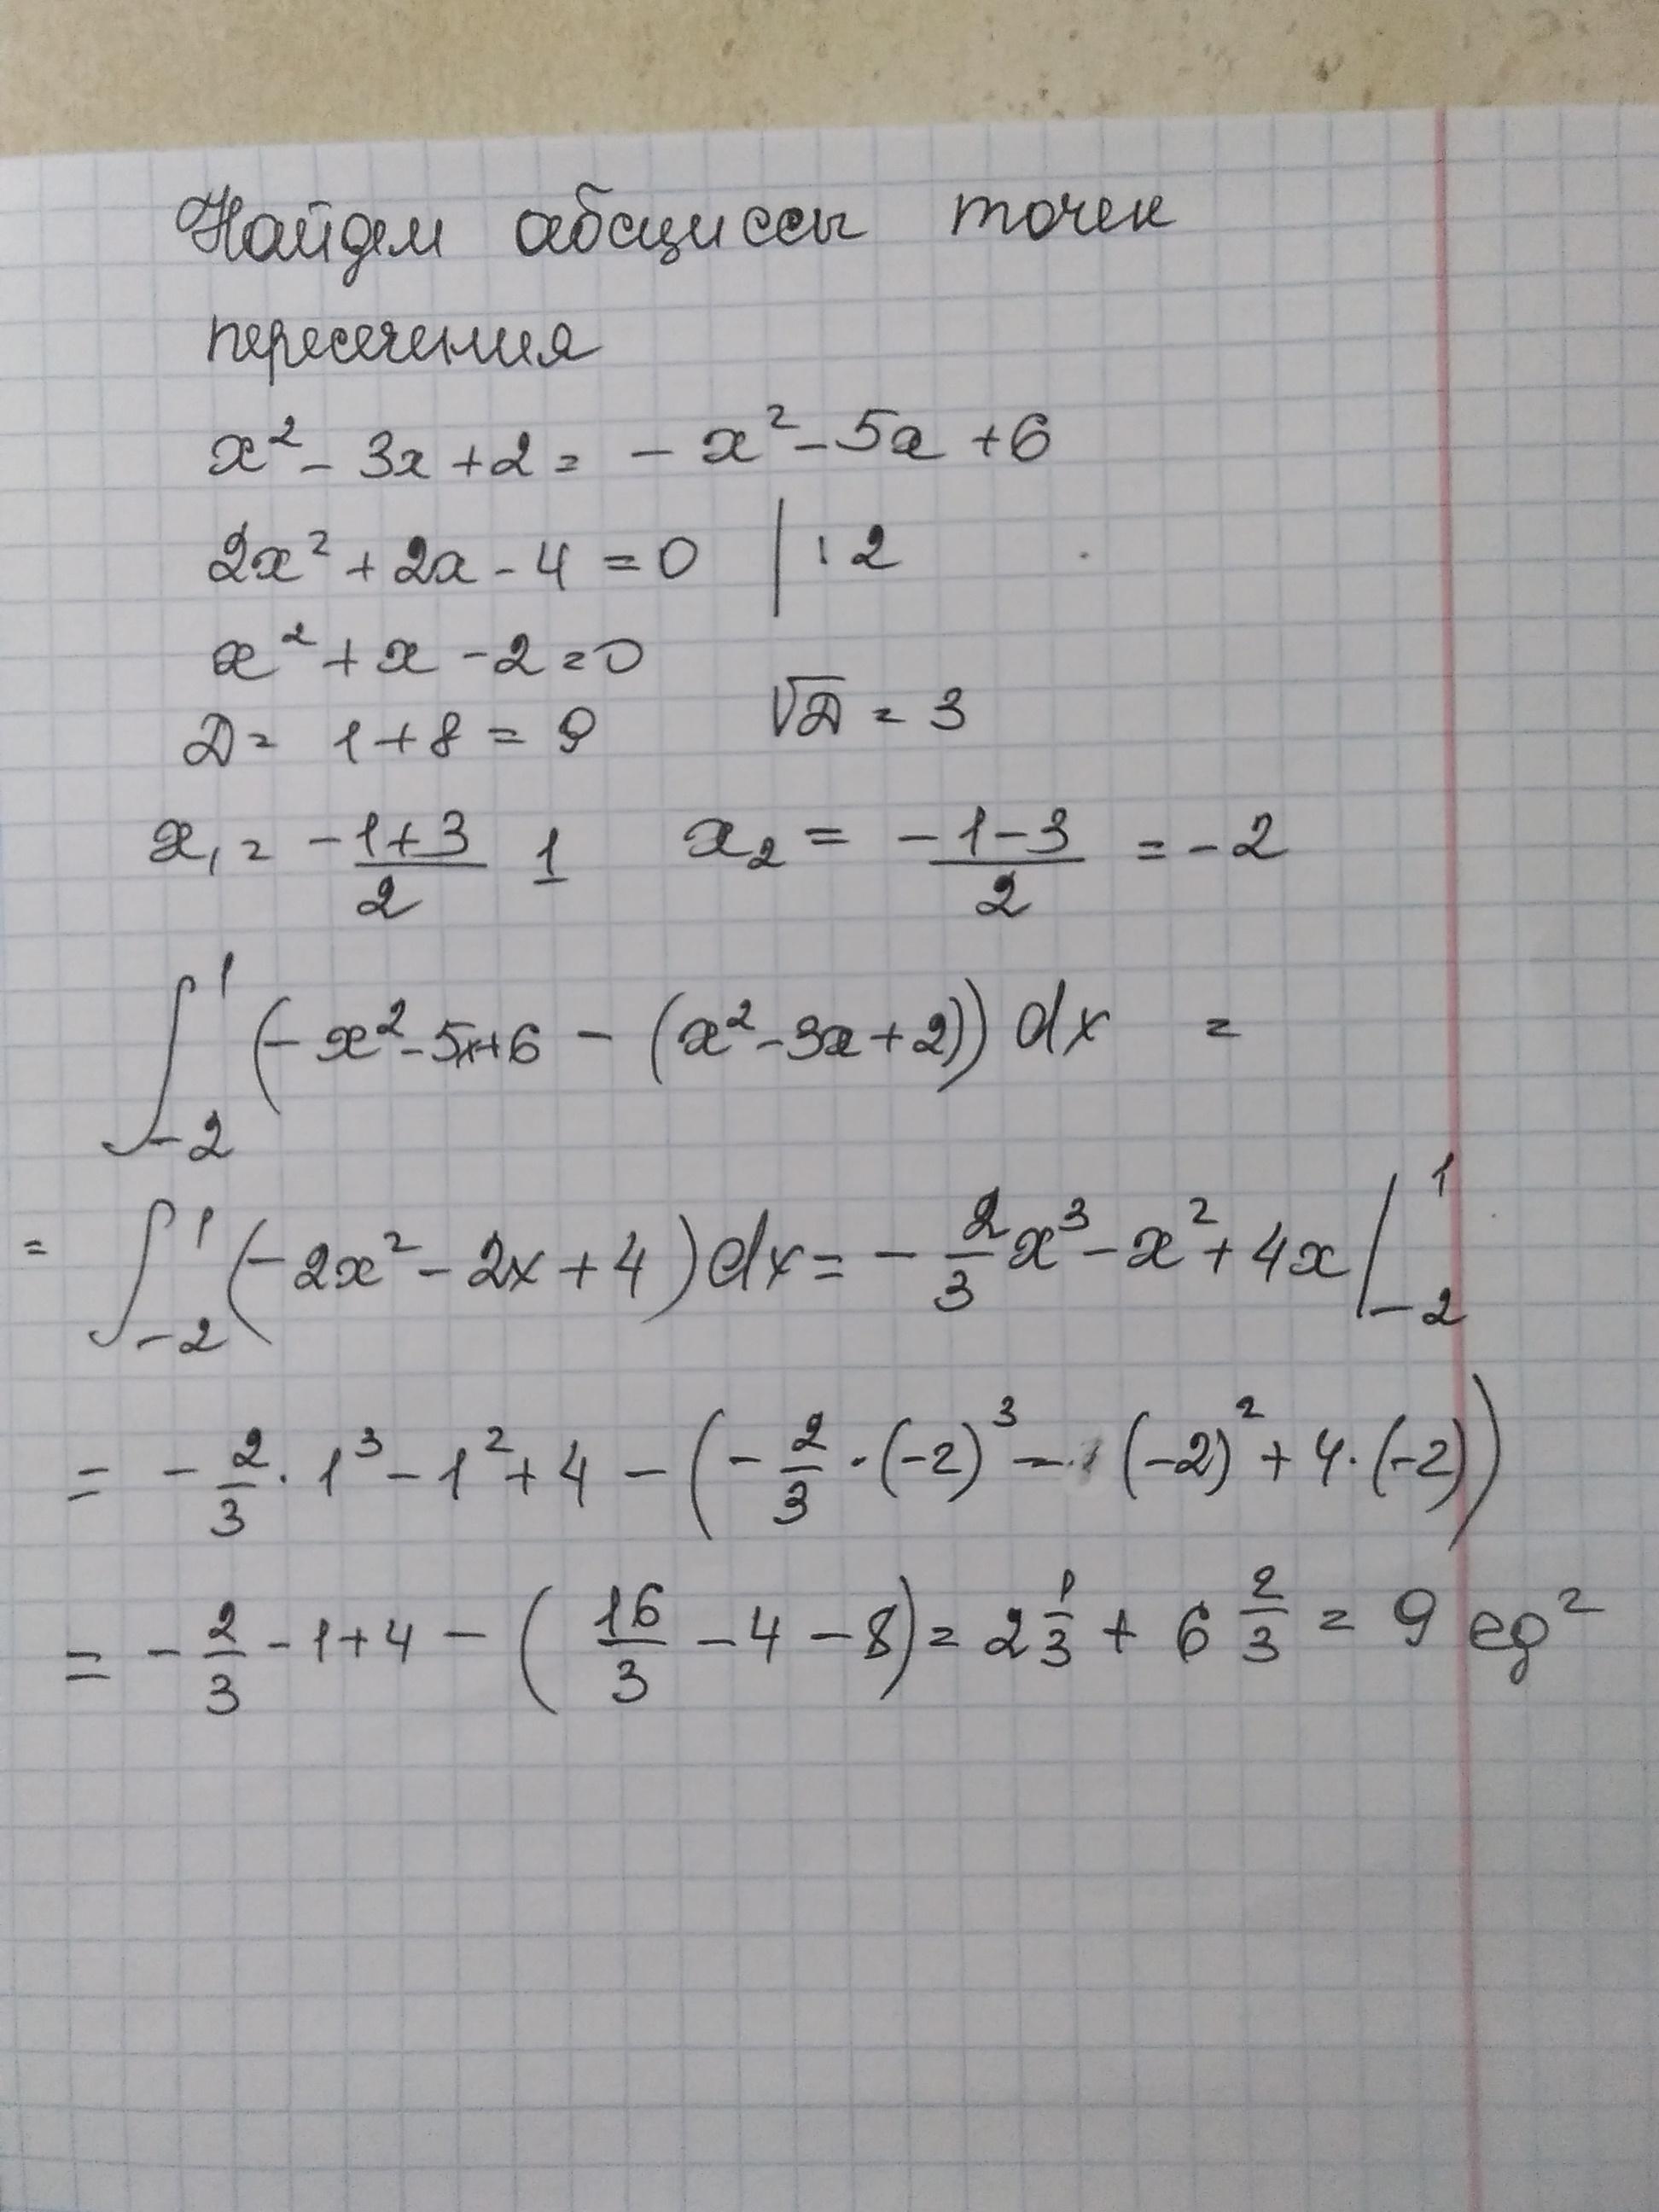 Найдем абсциссы точек
пересечения
x² - 3x + 2 = - x² - 5x + 6
2x² + 2x - 4 = 0 | : 2
x² + x - 2 = 0
D = 1 + 8 = 9 √D = 3
x₁ = (-1+3)/2 1 x₂ = (-1-3)/2 = -2
∫₋₂¹ (- x² - 5x + 6 - (x² - 3x + 2)) dx =
= ∫₋₂¹ (- 2x² - 2x + 4) dx = - 2/3 x³ - x² + 4x |₋₂¹
= - 2/3 · 1³ - 1² + 4 - (- 2/3 · (-2)³ - (-2)² + 4 · (-2))
= - 2/3 - 1 + 4 - (16/3 - 4 - 8) = 2 1/3 + 6 2/3 = 9 ед²